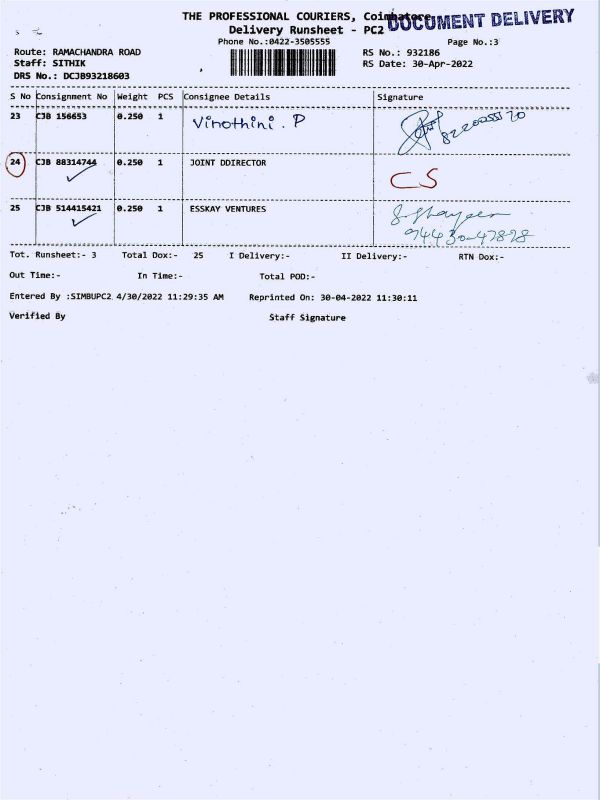 THE PROFESSIONAL COURIERS, Coimbatore
DOCUMENT DELIVERY
Delivery Runsheet - PC2
Phone No.:0422-3505555
Page No.:3
Route: RAMACHANDRA ROAD
RS No.: 932186
Staff: SITHIK
RS Date: 30-Apr-2022
DRS No.: DCJB93218603
S No Consignment No Weight PCS Consignee Details Signature
23 CJB 156653 0.250 1 Vinothini . P
24 CJB 88314744 0.250 1 JOINT DDIRECTOR CS
25 CJB 514415421 0.250 1 ESSKAY VENTURES
94430-47828
Tot. Runsheet:- 3 Total Dox:- 25 I Delivery:- II Delivery:- RTN Dox:-
Out Time:- In Time:- Total POD:-
Entered By :SIMBUPC2 4/30/2022 11:29:35 AM Reprinted On: 30-04-2022 11:30:11
Verified By Staff Signature